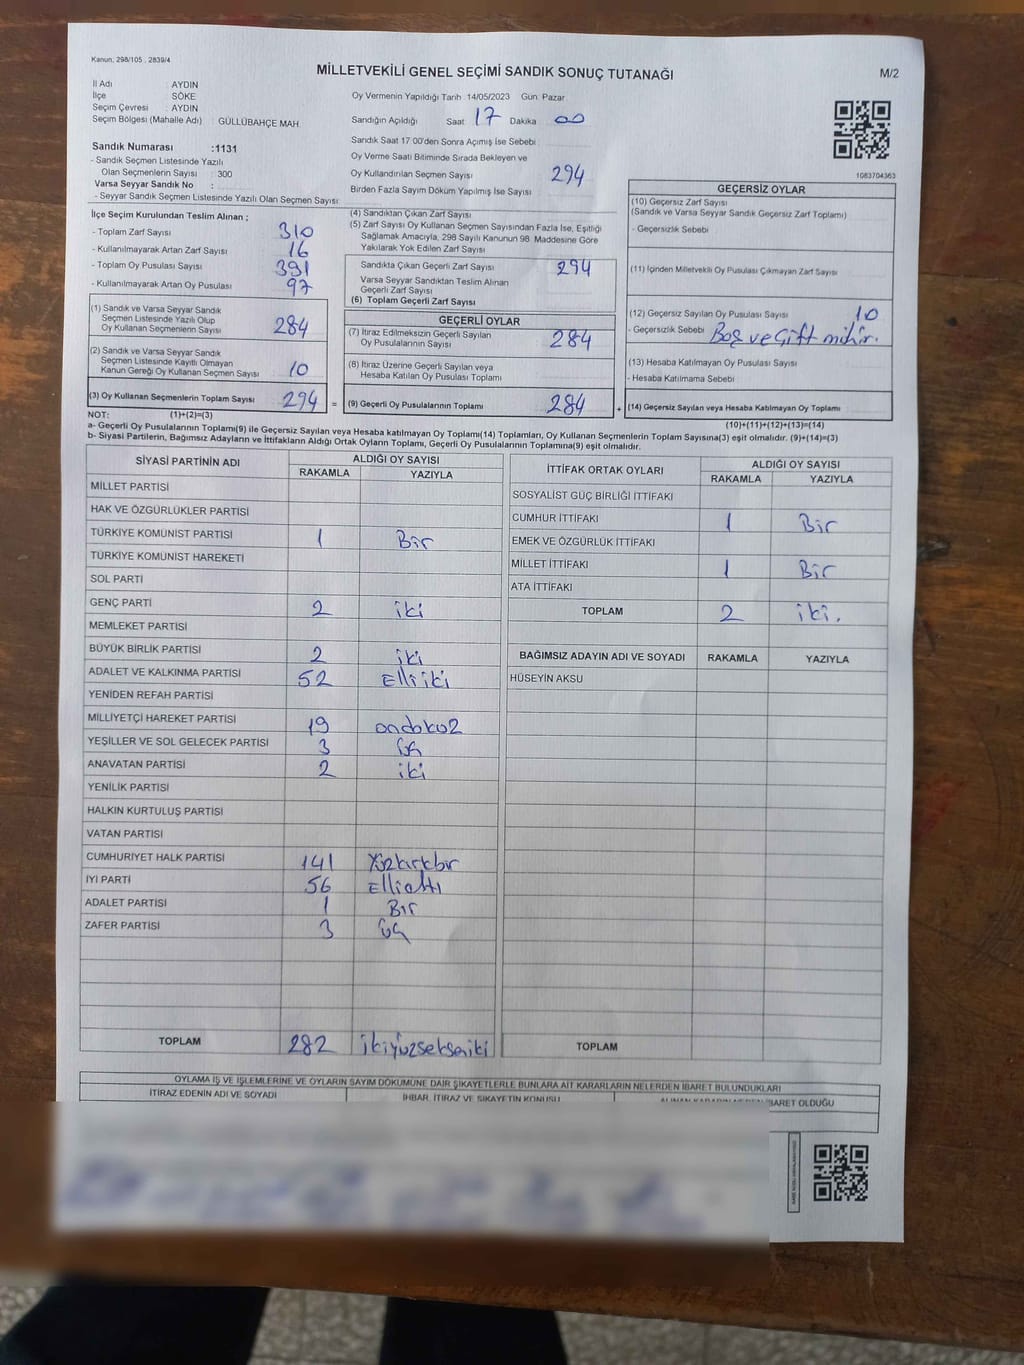 Kanun, 298/105 , 2839/4
MİLLETVEKİLİ GENEL SEÇİMİ SANDIK SONUÇ TUTANAĞI
M/2
İl Adı : AYDIN
İlçe : SÖKE
Seçim Çevresi : AYDIN
Seçim Bölgesi (Mahalle Adı) : GÜLLÜBAHÇE MAH.
Oy Vermenin Yapıldığı Tarih :14/05/2023 Gün: Pazar
Sandığın Açıldığı Saat 17 Dakika 00
Sandık Saat 17:00'den Sonra Açımış İse Sebebi
Oy Verme Saati Bitiminde Sırada Bekleyen ve
Oy Kullandırılan Seçmen Sayısı 294
Birden Fazla Sayım Döküm Yapılmış İse Sayısı
Sandık Numarası :1131
- Sandık Seçmen Listesinde Yazılı
Olan Seçmenlerin Sayısı : 300
Varsa Seyyar Sandık No :
- Seyyar Sandık Seçmen Listesinde Yazılı Olan Seçmen Sayısı:
1083704363
İlçe Seçim Kurulundan Teslim Alınan ;
- Toplam Zarf Sayısı 310
- Kullanılmayarak Artan Zarf Sayısı 16
- Toplam Oy Pusulası Sayısı 391
- Kullanılmayarak Artan Oy Pusulası 97
(1) Sandık ve Varsa Seyyar Sandık
Seçmen Listesinde Yazılı Olup
Oy Kullanan Seçmenlerin Sayısı 284
(2) Sandık ve Varsa Seyyar Sandık
Seçmen Listesinde Kayıtlı Olmayan
Kanun Gereği Oy Kullanan Seçmen Sayısı 10
(3) Oy Kullanan Seçmenlerin Toplam Sayısı 294 =
(4) Sandıktan Çıkan Zarf Sayısı
(5) Zarf Sayısı Oy Kullanan Seçmen Sayısından Fazla İse, Eşitliği
Sağlamak Amacıyla, 298 Sayılı Kanunun 98. Maddesine Göre
Yakılarak Yok Edilen Zarf Sayısı
Sandıkta Çıkan Geçerli Zarf Sayısı 294
Varsa Seyyar Sandıktan Teslim Alınan
Geçerli Zarf Sayısı
(6) Toplam Geçerli Zarf Sayısı
GEÇERLİ OYLAR
(7) İtiraz Edilmeksizin Geçerli Sayılan
Oy Pusulalarının Sayısı 284
(8) İtiraz Üzerine Geçerli Sayılan veya
Hesaba Katılan Oy Pusulası Toplamı
(9) Geçerli Oy Pusulalarının Toplamı 284 +
GEÇERSİZ OYLAR
(10) Geçersiz Zarf Sayısı
(Sandık ve Varsa Seyyar Sandık Geçersiz Zarf Toplamı)
- Geçersizlik Sebebi
(11) İçinden Milletvekili Oy Pusulası Çıkmayan Zarf Sayısı
(12) Geçersiz Sayılan Oy Pusulası Sayısı 10
- Geçersizlik Sebebi Boş ve Çift mühir.
(13) Hesaba Katılmayan Oy Pusulası Sayısı
- Hesaba Katılmama Sebebi
(14) Geçersiz Sayılan veya Hesaba Katılmayan Oy Toplamı
NOT: (1)+(2)=(3) (10)+(11)+(12)+(13)=(14)
a- Geçerli Oy Pusulalarının Toplamı(9) ile Geçersiz Sayılan veya Hesaba katılmayan Oy Toplamı(14) Toplamları, Oy Kullanan Seçmenlerin Toplam Sayısına(3) eşit olmalıdır. (9)+(14)=(3)
b- Siyasi Partilerin, Bağımsız Adayların ve İttifakların Aldığı Ortak Oyların Toplamı, Geçerli Oy Pusulalarının Toplamına(9) eşit olmalıdır.
SİYASİ PARTİNİN ADI ALDIĞI OY SAYISI
RAKAMLA YAZIYLA
MİLLET PARTİSİ
HAK VE ÖZGÜRLÜKLER PARTİSİ
TÜRKİYE KOMÜNİST PARTİSİ 1 Bir
TÜRKİYE KOMÜNİST HAREKETİ
SOL PARTİ
GENÇ PARTİ 2 iki
MEMLEKET PARTİSİ
BÜYÜK BİRLİK PARTİSİ 2 iki
ADALET VE KALKINMA PARTİSİ 52 Elliiki
YENİDEN REFAH PARTİSİ
MİLLİYETÇİ HAREKET PARTİSİ 19 ondokuz
YEŞİLLER VE SOL GELECEK PARTİSİ 3 üç
ANAVATAN PARTİSİ 2 iki
YENİLİK PARTİSİ
HALKIN KURTULUŞ PARTİSİ
VATAN PARTİSİ
CUMHURİYET HALK PARTİSİ 141 Yüzkırkbir
İYİ PARTİ 56 Ellialtı
ADALET PARTİSİ 1 Bir
ZAFER PARTİSİ 3 üç
TOPLAM 282 ikiyüzsekseniki
İTTİFAK ORTAK OYLARI ALDIĞI OY SAYISI
RAKAMLA YAZIYLA
SOSYALİST GÜÇ BİRLİĞİ İTTİFAKI
CUMHUR İTTİFAKI 1 Bir
EMEK VE ÖZGÜRLÜK İTTİFAKI
MİLLET İTTİFAKI 1 Bir
ATA İTTİFAKI
TOPLAM 2 iki.
BAĞIMSIZ ADAYIN ADI VE SOYADI RAKAMLA YAZIYLA
HÜSEYİN AKSU
TOPLAM
OYLAMA İŞ VE İŞLEMLERİNE VE OYLARIN SAYIM DÖKÜMÜNE DAİR ŞİKAYETLERLE BUNLARA AİT KARARLARIN NELERDEN İBARET BULUNDUKLARI
İTİRAZ EDENİN ADI VE SOYADI İHBAR, İTİRAZ VE ŞİKAYETİN KONUSU ALINAN KARARIN NEDEN İBARET OLDUĞU